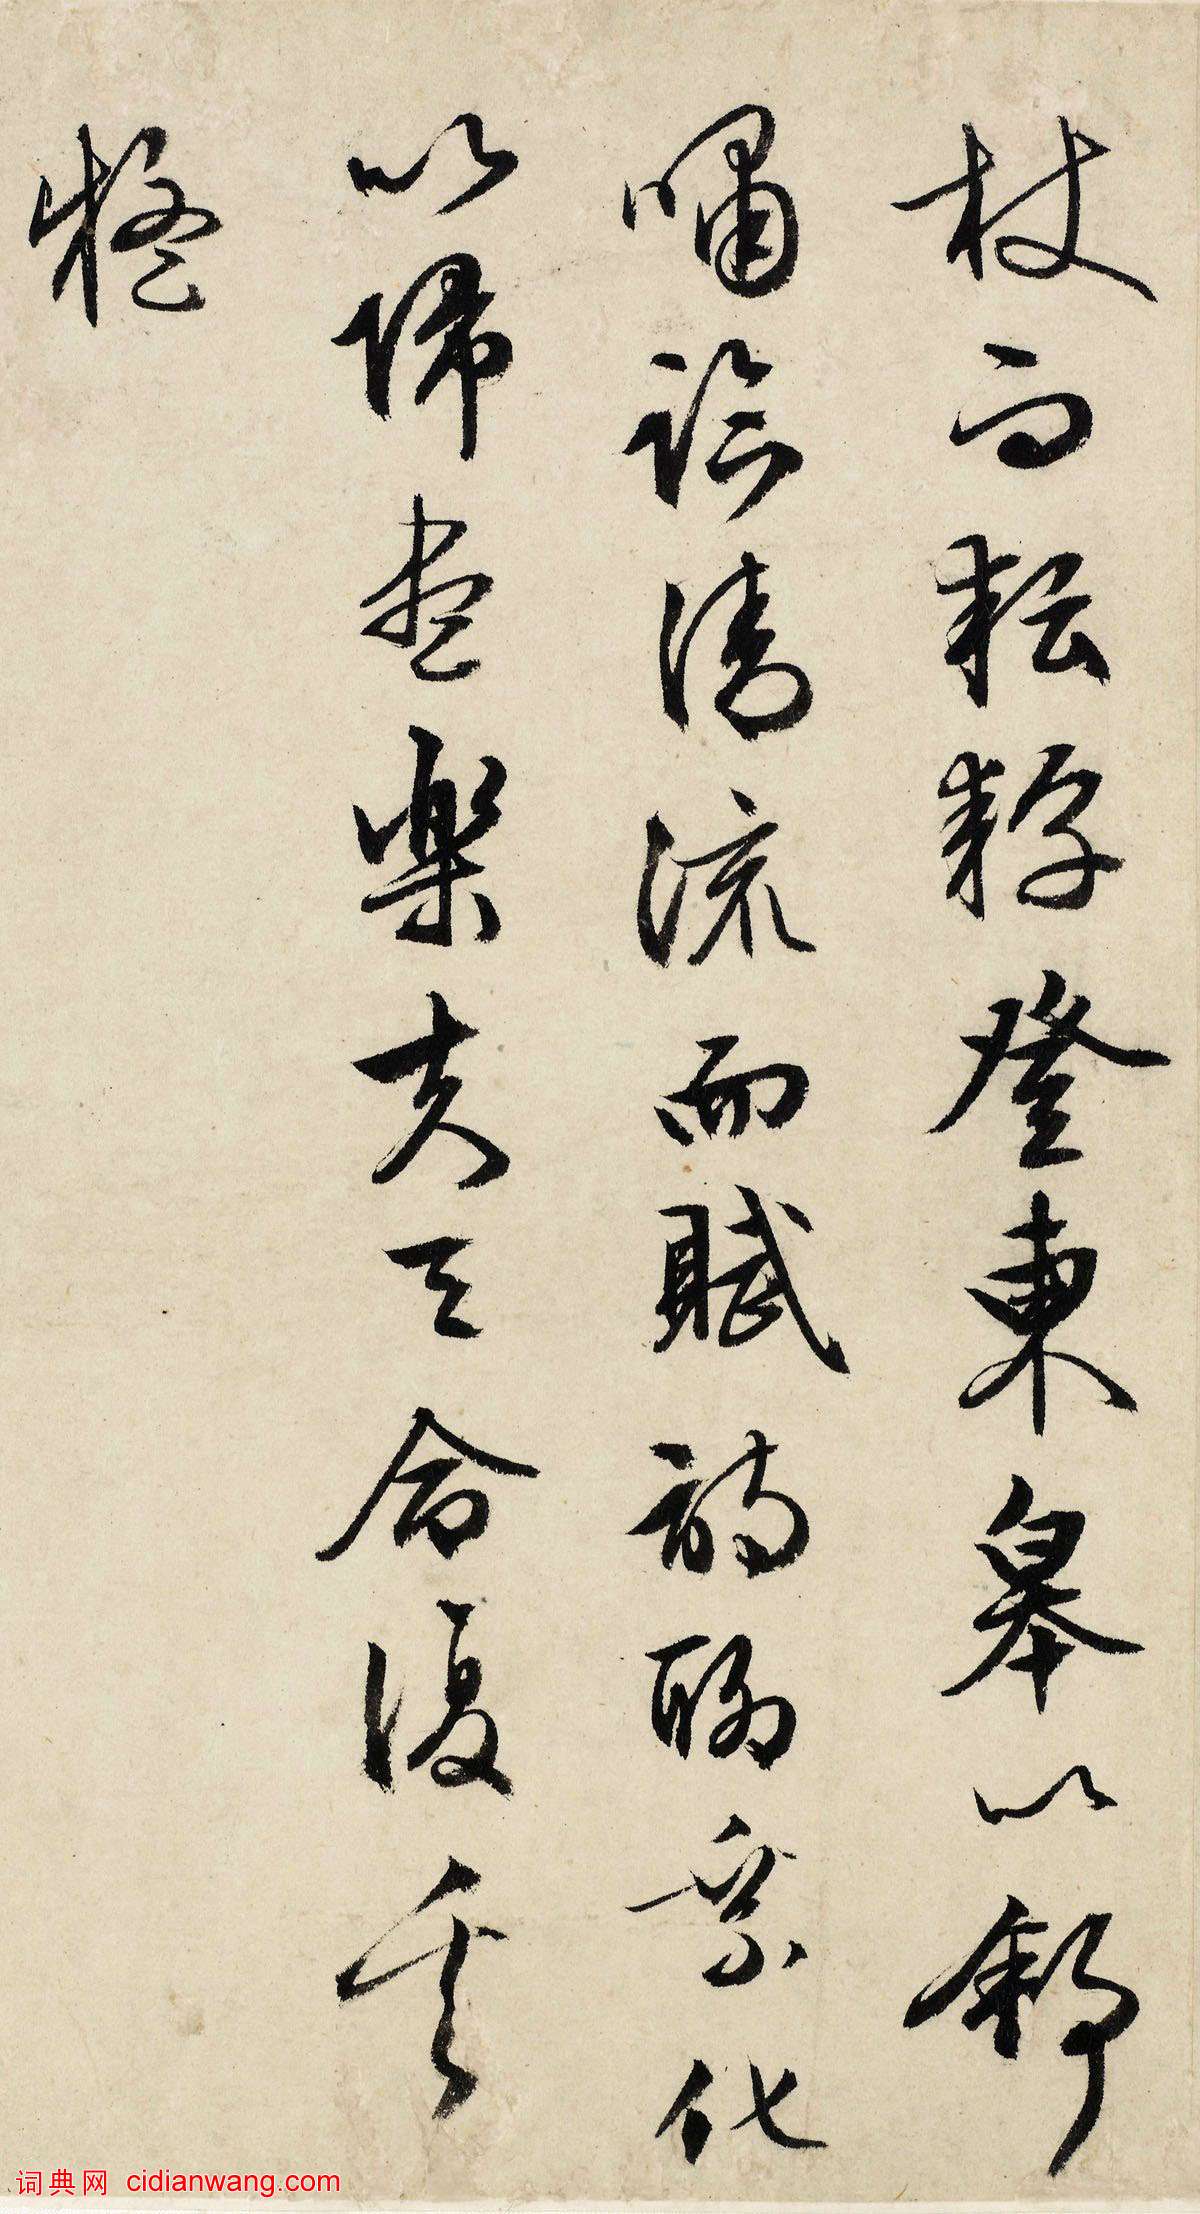 杖而耘耔登東皋以舒
嘯臨清流而賦詩聊乘化
以歸盡樂夫天命復奚
疑
词典网 cidianwang.com